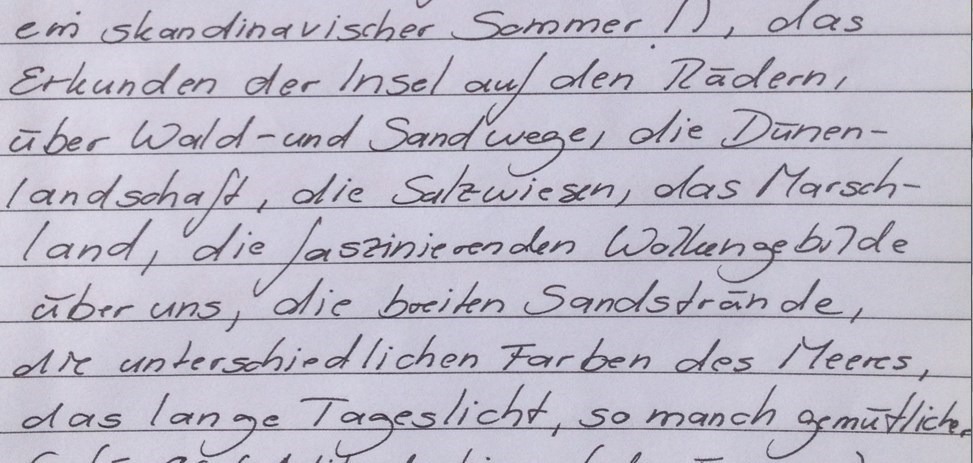 ein skandinavischer Sommer!), das
Erkunden der Insel auf den Rädern,
über Wald- und Sandwege, die Dünen-
landschaft, die Salzwiesen, das Marsch-
land, die faszinierenden Wolkengebilde
über uns, die breiten Sandstrände,
die unterschiedlichen Farben des Meeres,
das lange Tageslicht, so manch gemütlicher